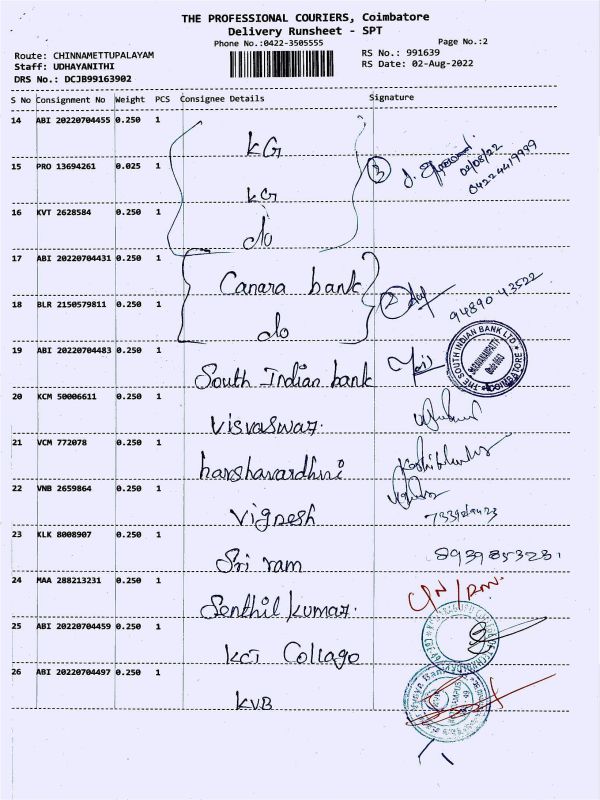 THE PROFESSIONAL COURIERS, Coimbatore
Delivery Runsheet - SPT
Phone No.:0422-3505555 Page No.:2
Route: CHINNAMETTUPALAYAM RS No.: 991639
Staff: UDHAYANITHI RS Date: 02-Aug-2022
DRS No.: DCJB99163902
S No Consignment No Weight PCS Consignee Details Signature
14 ABI 20220704455 0.250 1 KG
15 PRO 13694261 0.025 1 KG 3 02/08/22
04224419999
16 KVT 2628584 0.250 1 do
17 ABI 20220704431 0.250 1 Canara bank
18 BLR 2150579811 0.250 1 do 2 94890 43522
19 ABI 20220704483 0.250 1 South Indian bank
THE SOUTH INDIAN BANK LTD
COIMBATORE
20 KCM 50006611 0.250 1 Visvaswar.
21 VCM 772078 0.250 1 harshavardhni
22 VNB 2659864 0.250 1 Vignesh
23 KLK 8008907 0.250 1 Sri ram 8939853281
24 MAA 288213231 0.250 1 Senthil kumar.
25 ABI 20220704459 0.250 1 KCT Collage
26 ABI 20220704497 0.250 1 KVB